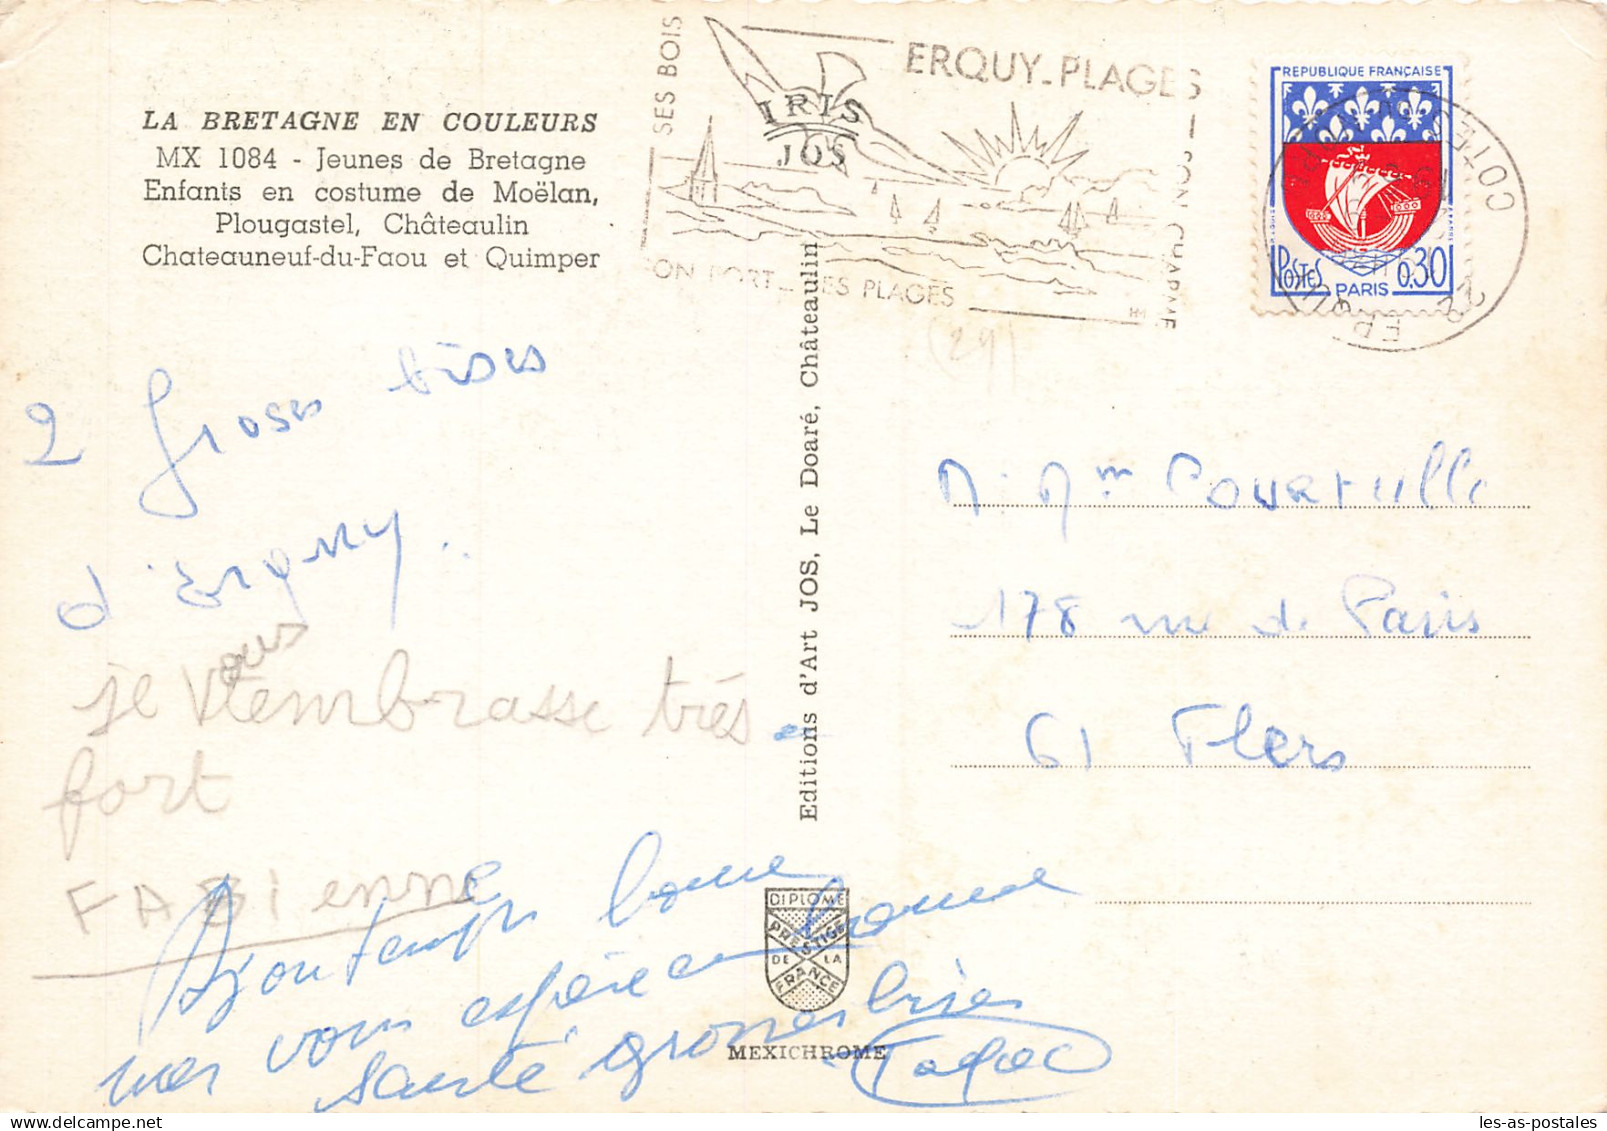 LA BRETAGNE EN COULEURS
MX 1084 - Jeunes de Bretagne
Enfants en costume de Moëlan,
Plougastel, Châteaulin
Chateauneuf-du-Faou et Quimper
SES BOIS
ERQUY-PLAGES
IRIS
JOS
ON PORT _ SES PLAGES
REPUBLIQUE FRANÇAISE
POSTES
0,30
PARIS
(29)
2 Groses bises
d'Erquy..
je vous t'embrasse très
fort
FABienne
bonne
vous espère en bonne
santé grosses bises
Editions d'Art JOS, Le Doaré, Châteaulin
DIPLOME
PRESTIGE
DE LA
FRANCE
MEXICHROME
M. Mm Courteille
178 rue de Paris
61 Flers
les-as-postales